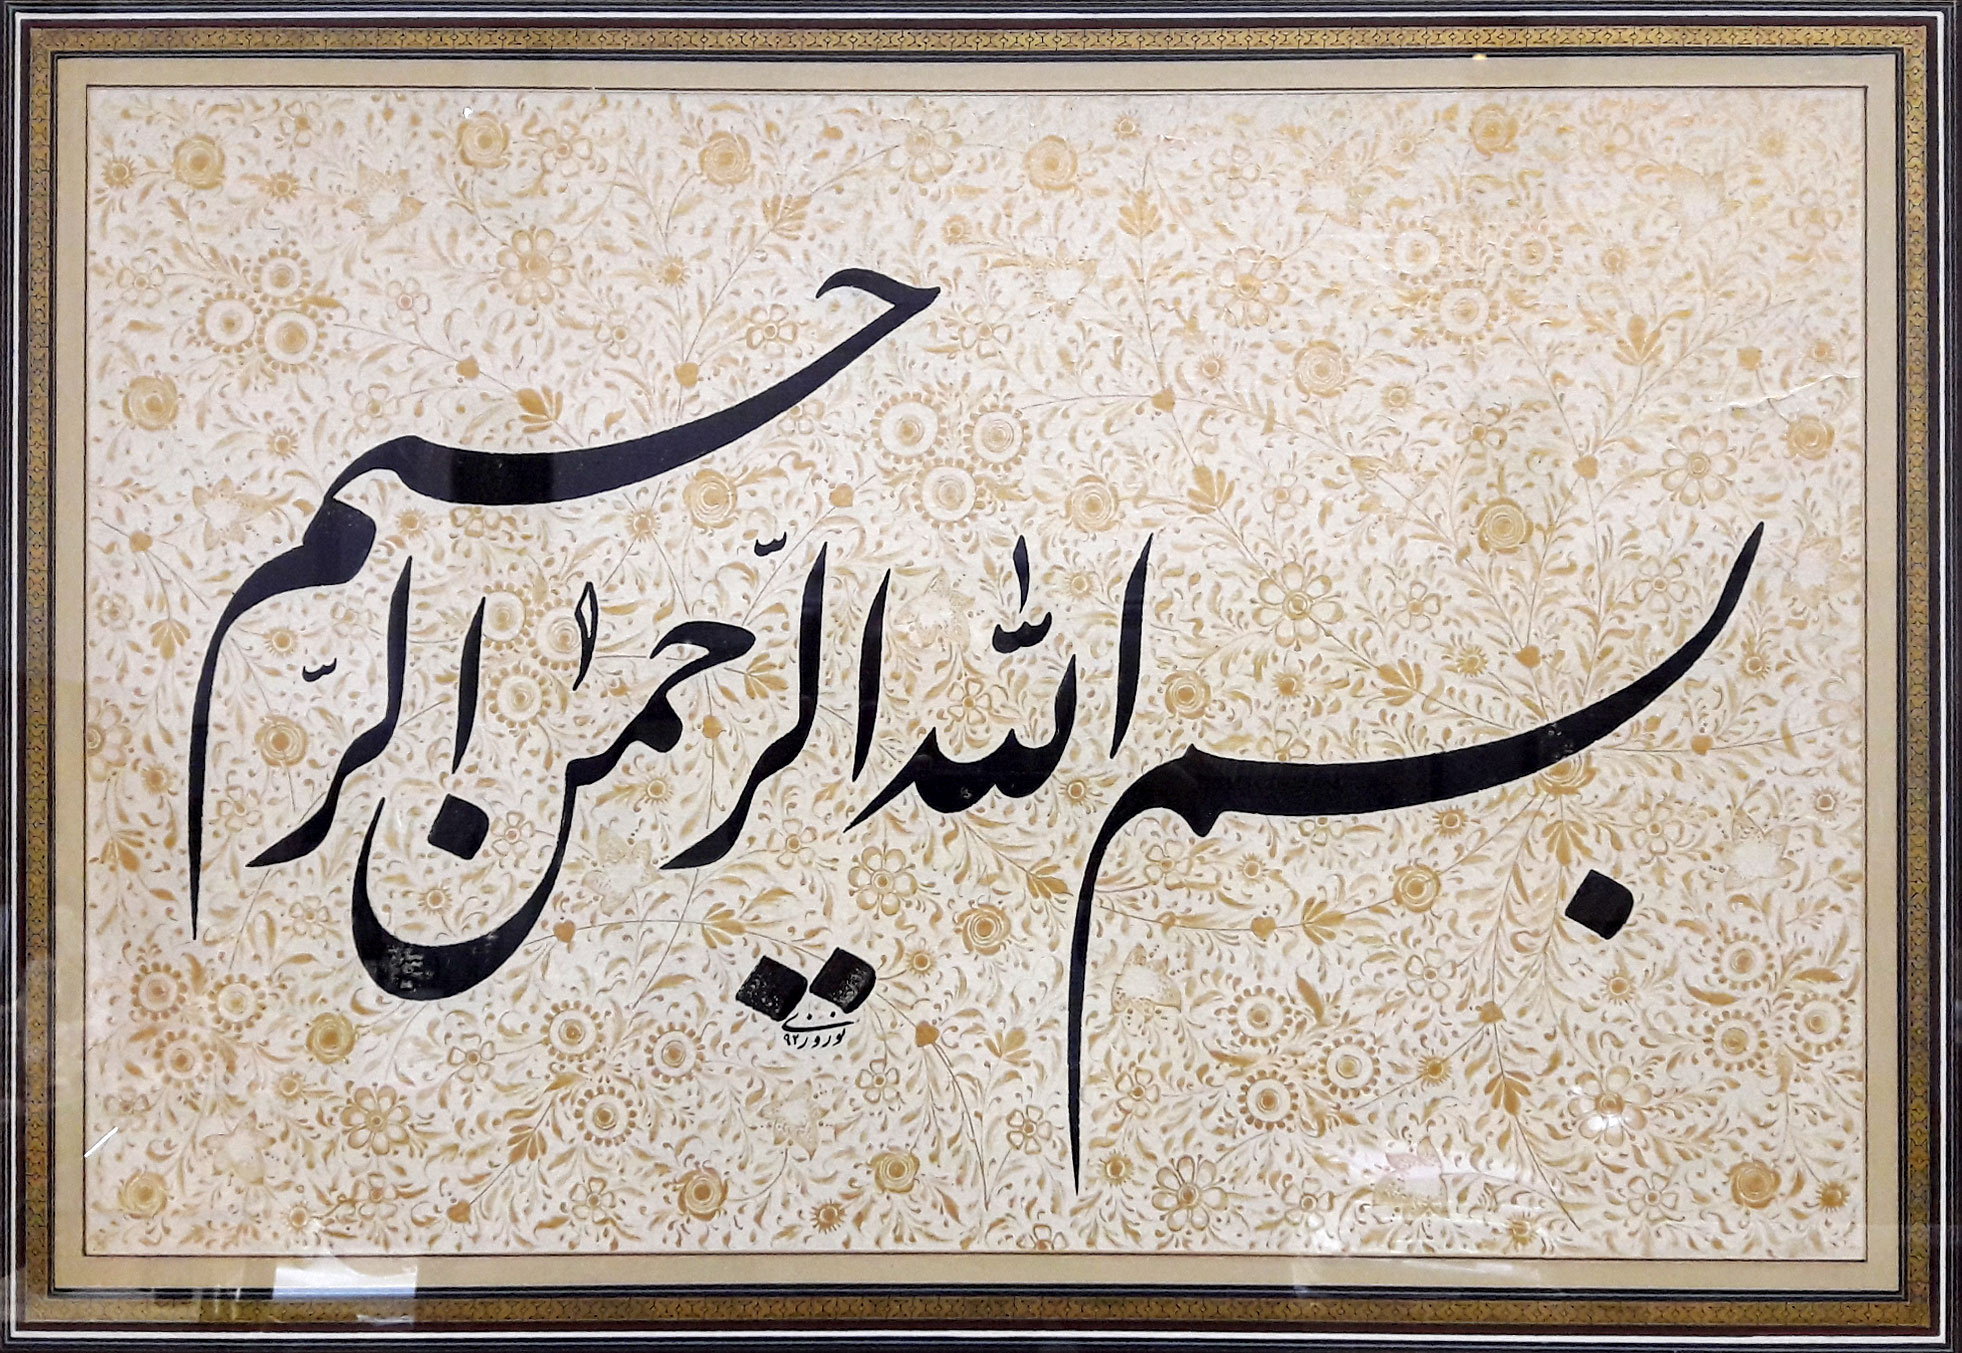 بسم الله الرّحمٰن الرّحیم
نوروز ۹۲